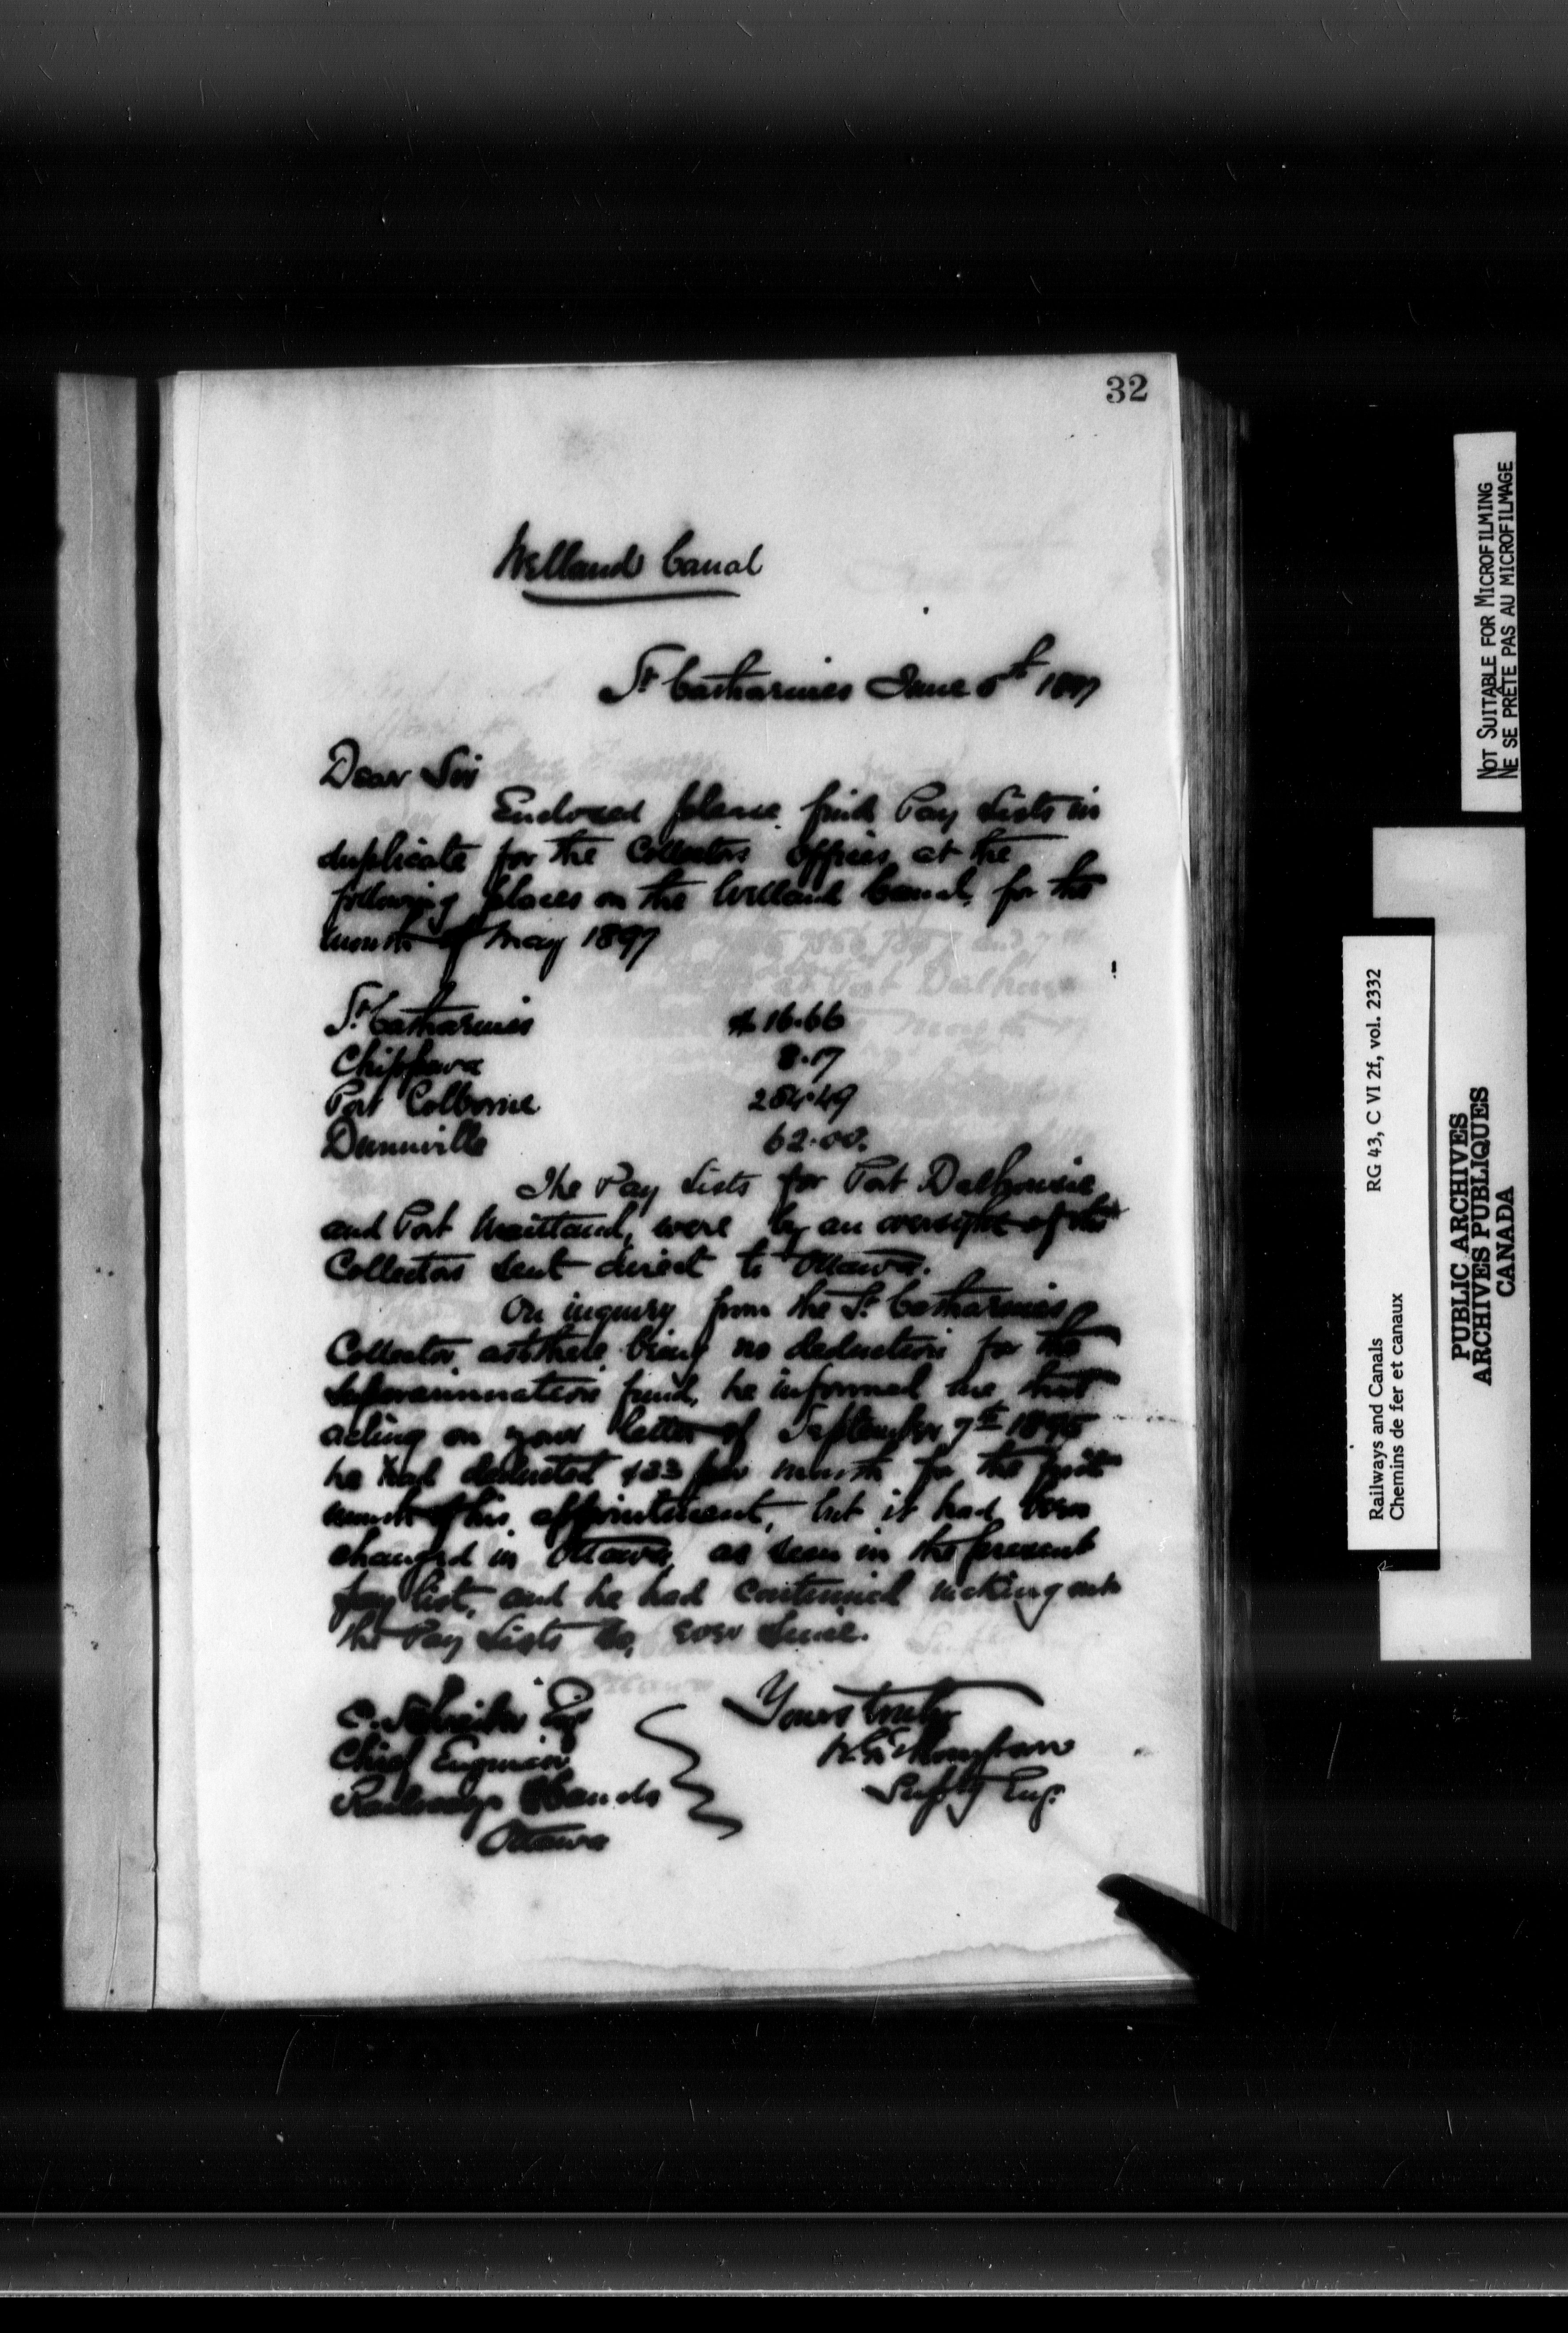 32
Welland Canal
St Catharines June 5th 1897
Dear Sir
Enclosed please find Pay Lists in
duplicate for the Collectors offices at the
following places on the Welland Canal, for the
month of May 1897
St. Catharines $16.66
Chippawa 8.17
Port Colborne 284.49
Dunnville 62.00.
The Pay Lists for Port Dalhousie
and Port Maitland, were by an oversight of the
Collectors sent direct to Ottawa.
On inquiry from the St Catharines
Collector as there being no deduction for the
Superannuation fund, he informed me that
acting on your letter of September 7th 1895
he had deducted per month for the first
month of his appointment, but it had been
changed in Ottawa, as seen in the present
pay list, and he had continued making out
the Pay Lists so, ever since.
C. Schreiber Esq
Chief Engineer
Railways & Canals
Ottawa
Yours truly
W. G. Thompson
Supt g Eng.
NOT SUITABLE FOR MICROFILMING
NE SE PRÊTE PAS AU MICROFILMAGE
Railways and Canals RG 43, C VI 2f, vol. 2332
Chemins de fer et canaux
PUBLIC ARCHIVES
ARCHIVES PUBLIQUES
CANADA